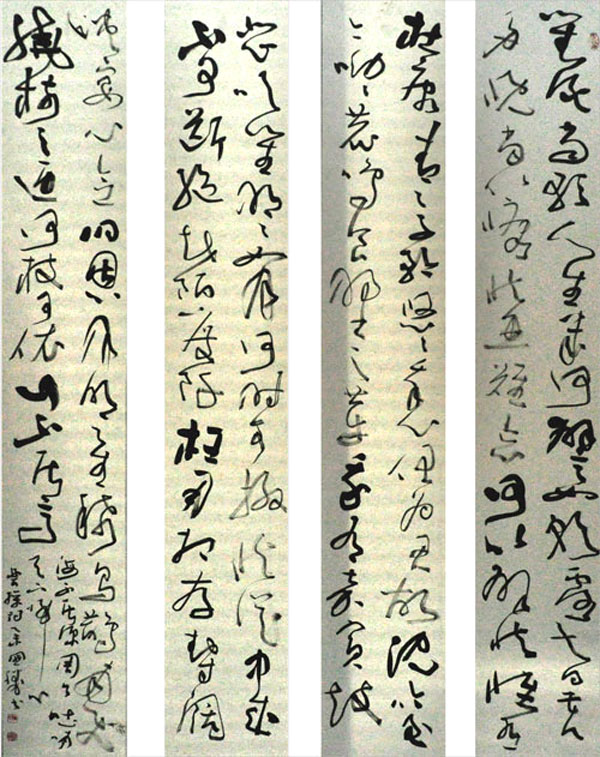 對酒當歌人生幾何譬如朝露去日苦
多慨當以慷憂思難忘何以解憂唯有
杜康青青子衿悠悠我心但為君故沈吟至
今呦呦鹿鳴食野之苹我有嘉賓鼓
瑟吹笙明明如月何時可掇憂從中來
不可斷絕越陌度阡枉用相存契闊
談宴心念舊恩月明星稀烏鵲南飛
繞樹三匝何枝可依山不厭高
海不厭深周公吐哺
天下歸心
曹操詩